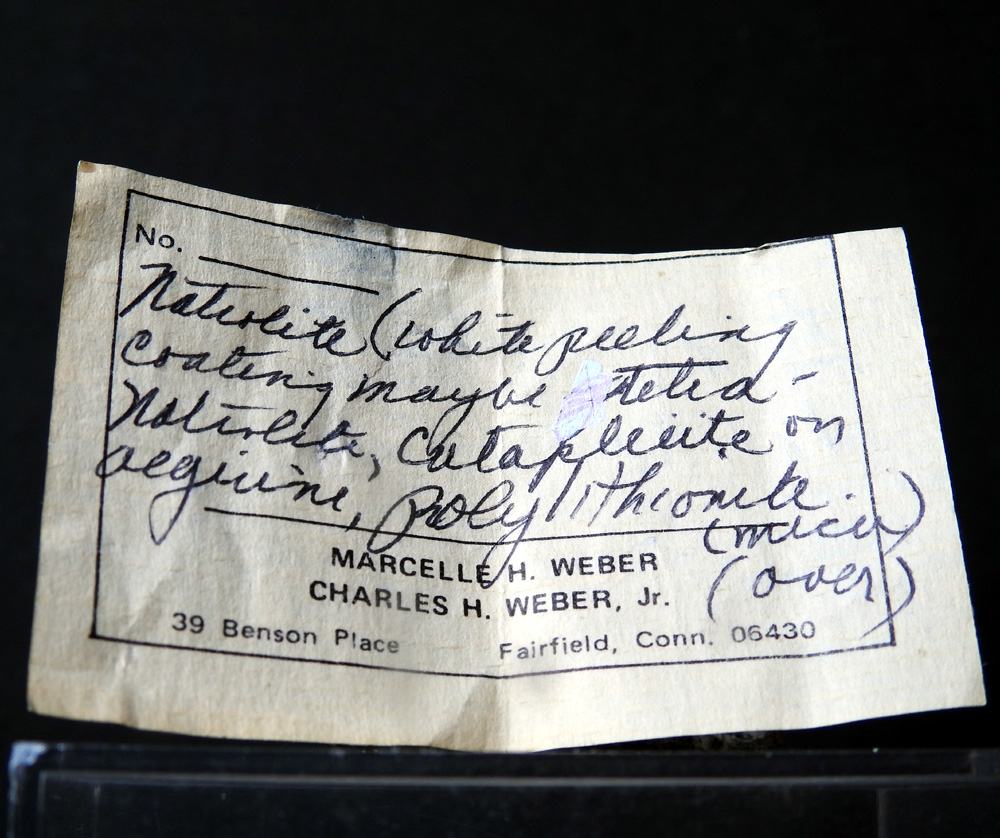 No.
Natrolite (white peeling
coating maybe tetra-
Natrolite, Catapleiite on
aegirine, polylithionite.
(mica)
MARCELLE H. WEBER
CHARLES H. WEBER, Jr.
(over)
39 Benson Place Fairfield, Conn. 06430